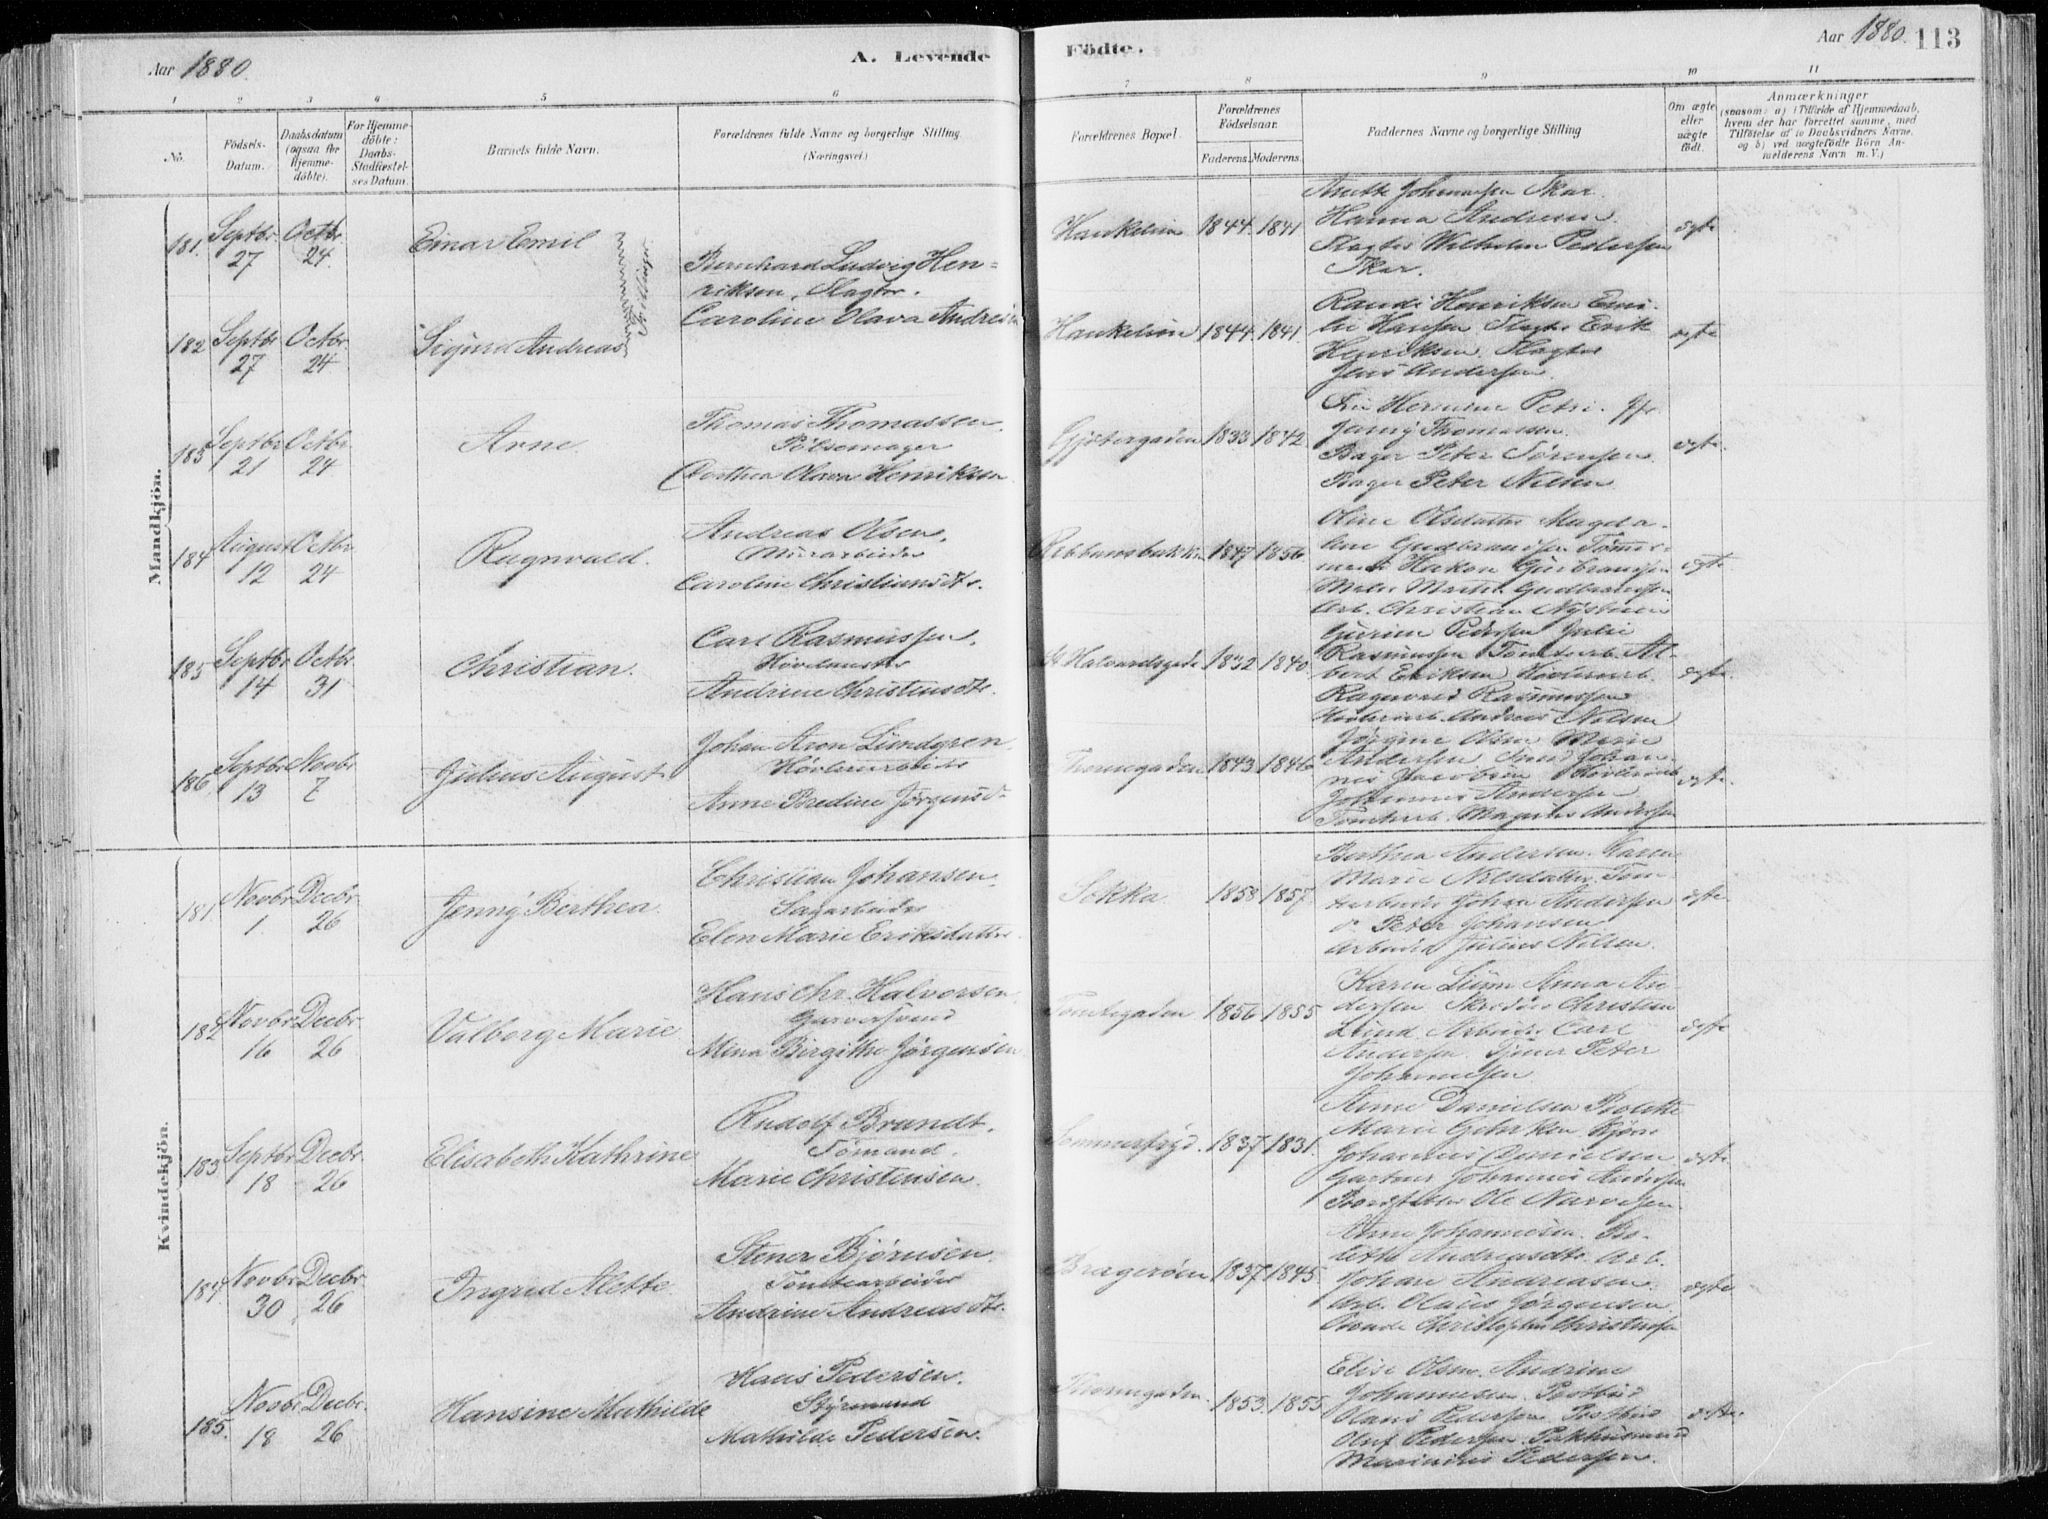 Aar 1880.
A. Levende
Födte.
Aar 1880.
113
1
2
3
4
5
6
7
8
9
10
11
No.
Födsels-
Datum.
Daabsdatum
(ogsaa for
Hjemme-
döbte).
For Hjemme-
döbte:
Daabs-
Stadfæstel-
ses Datum.
Barnets fulde Navn.
Forældrenes fulde Navne og borgerlige Stilling
(Næringsvei.)
Forældrenes Bopæl.
Forældrenes
Födselsaar.
Faderens.
Moderens.
Faddernes Navne og borgerlige Stilling
Om ægte
eller
uægte
født.
Anmærkninger
(saasom: a) i Tilfælde af Hjemmedaab,
hvem der har forrettet samme, med
Tilføielse af to Daabsvidners Navne,
og b) ved uægtefödte Börn An-
melderens Navn m. V.)
Mandkjön.
181.
Septbr
27
Octbr.
24.
Einar Emil
Tvillinger
Bernhard Ludvig Hen-
riksen, Slagter.
Caroline Olava Andresen
1844.
1841
Anette Johannesen Skar.
Hanna Andresen
Slagter Wilhelm Pedersen
Skar.
ægte
182
Septbr
27
Octbr
24
Sigurd Andreas
1844.
1841.
Randi Henriksen Emi-
lie Hansen Slagter Erik
Henriksen. Slagter
Jens Andersen.
ægte
183
Septbr
21
Octbr
24
Arne.
Thomas Thomassen.
Pölsemager
Dorthea Olava Henriksen
Gjetergaden
1833
1842.
Hermine Petri.
Jenny Thomassen.
Bager Peter Sørensen.
Bager Peter Nilsen
ægte.
184
August
12
Octbr
24
Ragnvald.
Andreas Olsen.
Murarbeider
Caroline Christiansdtr.
1847
1856.
Oline Olsdatter Magda-
Maler Martin Gudbrandsen
Arb. Christian
ægte.
185
Septbr
14
Octbr.
31
Christian.
Carl Rasmussen.
Andrine Christensdtr.
St Halvardsgade
1832
1840
Pedersen Julie
Rasmussen Tomtearb. Al-
bert Eriksen Høvlerarb.
Ragnvald Rasmussen
Høvlerarb. Andreas Nilsen
ægte.
186
Septbr
13
Novbr
7
Julius August
Johan Aron Lundgren.
Høvlerarbeider
Anne Bredine Jørgensd.
Thornegaden
1843.
1846
Jørgine Olsen Marie
Andersen
Johannes Andersen
Tomtearb. Magnus Andersen
ægte.
Kvindekjön.
181
Novbr
1
Decbr.
26
Jenny Berthea.
Christian Johansen.
Sagarbeider
Elen Marie Eriksdatter.
Sokka
1858
1857.
Berthea Andersen. Karen
Marie Nilsdatter. Tom-
tearbeider Johan Andersen
Peter Johansen
Arbeider Julius Nilsen.
ægte.
182
Novbr.
16
Decbr.
26
Valborg Marie
Hans Chr. Halvorsen.
Garversvend
Mina Birgithe Jørgensen
Tomtegaden
1856
1855
Karen Lund Anna An-
dersen Skredder Christian
Lund. Arbeider Carl
Andersen. Tjener Peter
Johannesen
ægte
183
Septbr.
18
Decbr.
26
Elisabeth Kathrine
Rudolf Brandt.
Sømand.
Marie Christensen.
Sommerfryd.
1837
1831.
Anne Danielsen Bolette
Marie Gehrken
Johannes Danielsen
Gartner Johannes Andersen
Ole Narvesen.
ægte
184
Novbr.
30
Decbr.
26
Ingrid Alette.
Stener Bjørnsen.
Tomtearbeider
Andrine Andreasdtr.
Bragerøen
1837
1845.
Anne Johannesen. Bo-
lethe Andreasdtr. Arb.
Johan Andreasen.
Arb. Olaus Jørgensen
Bonde Christopher Christensen
ægte
185.
Novbr.
18
Decbr.
26
Hansine Mathilde
Hans Pedersen.
Styrmand
Mathilde Pedersen.
Thornegaden.
1853.
1855
Elise Olsen. Andrine
Johannesen. Postbud
Hans Pedersen Postbud
Oluf Pedersen. Pakhusmand
Marinius Pedersen.
ægte.